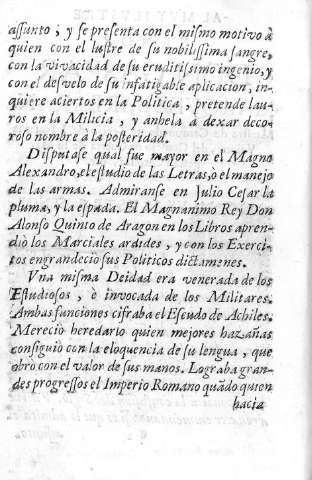 assunto, y se presenta con el mismo motivo à
quien con el lustre de su nobilissima sangre,
con la vivacidad de su eruditissimo ingenio, y
con el desvelo de su infatigable aplicacion, in-
quiere aciertos en la Politica, pretende lau-
ros en la Milicia, y anhela à dexar deco-
roso nombre à la posteridad.
Disputase qual fue mayor en el Magno
Alexandro, el estudio de las Letras, ò el manejo
de las armas. Admiranse en Julio Cesar la
pluma, y la espada. El Magnanimo Rey Don
Alonso Quinto de Aragon en los Libros apren-
diò los Marciales ardides, y con los Exerci-
tos engrandeciò sus Politicos dictamenes.
Vna misma Deidad era venerada de los
Estudiosos, è invocada de los Militares.
Ambas funciones cifraba el Escudo de Achiles.
Merecio heredarlo quien mejores hazañas
consiguiò con la eloquencia de su lengua, que
obrò con el valor de sus manos. Lograba gran-
des progressos el Imperio Romano quãdo quien
hacia